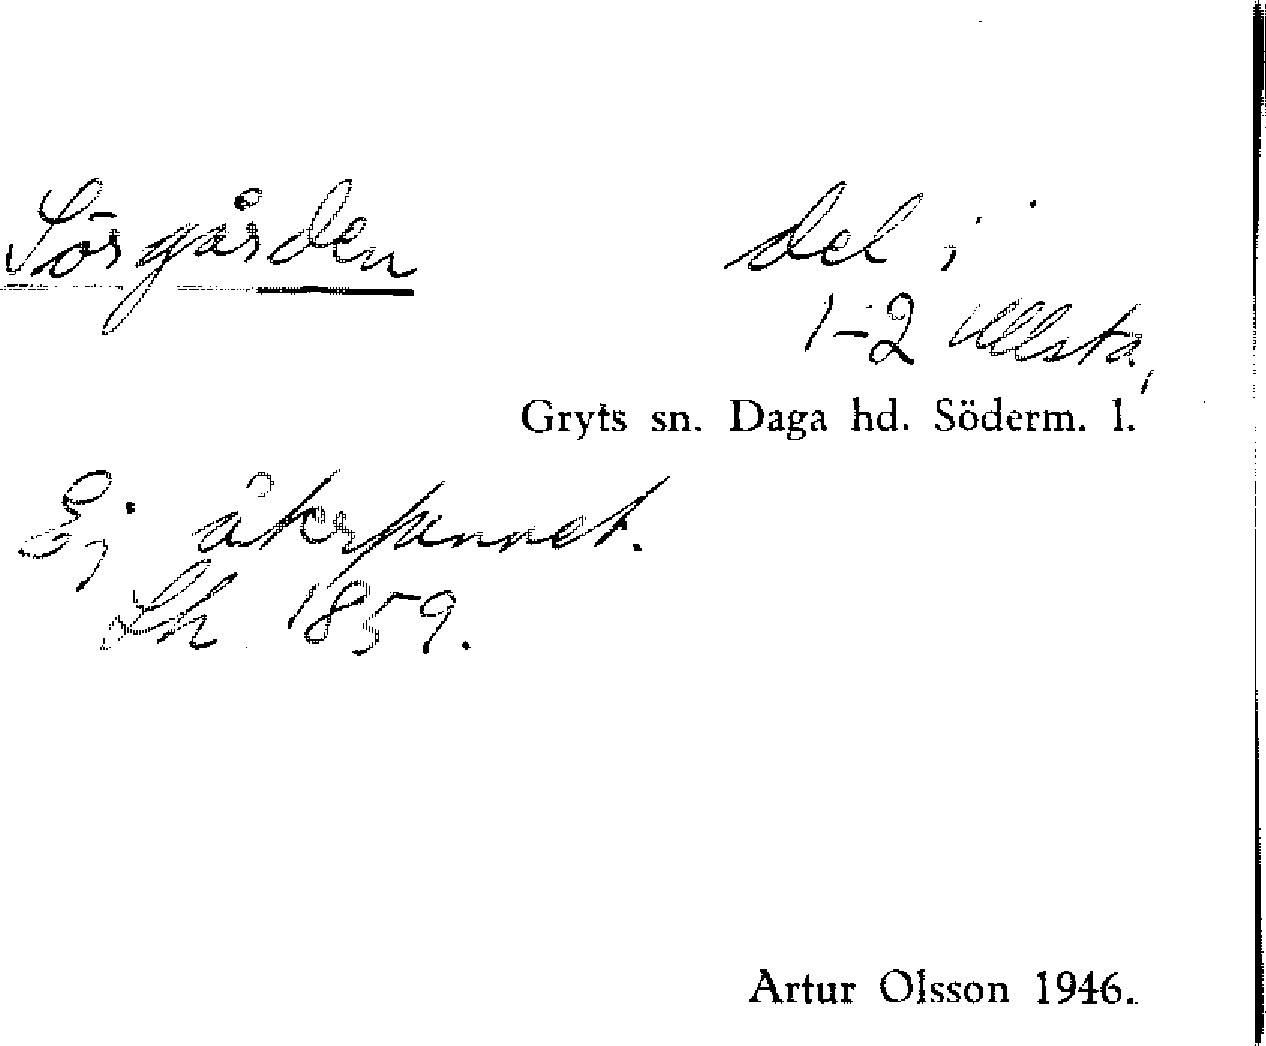 Sörgården
del i
1-2 Ullsta,
Gryts sn. Daga hd. Söderm. l.
Ej återfunnet.
Lh 1859.
Artur Olsson 1946.